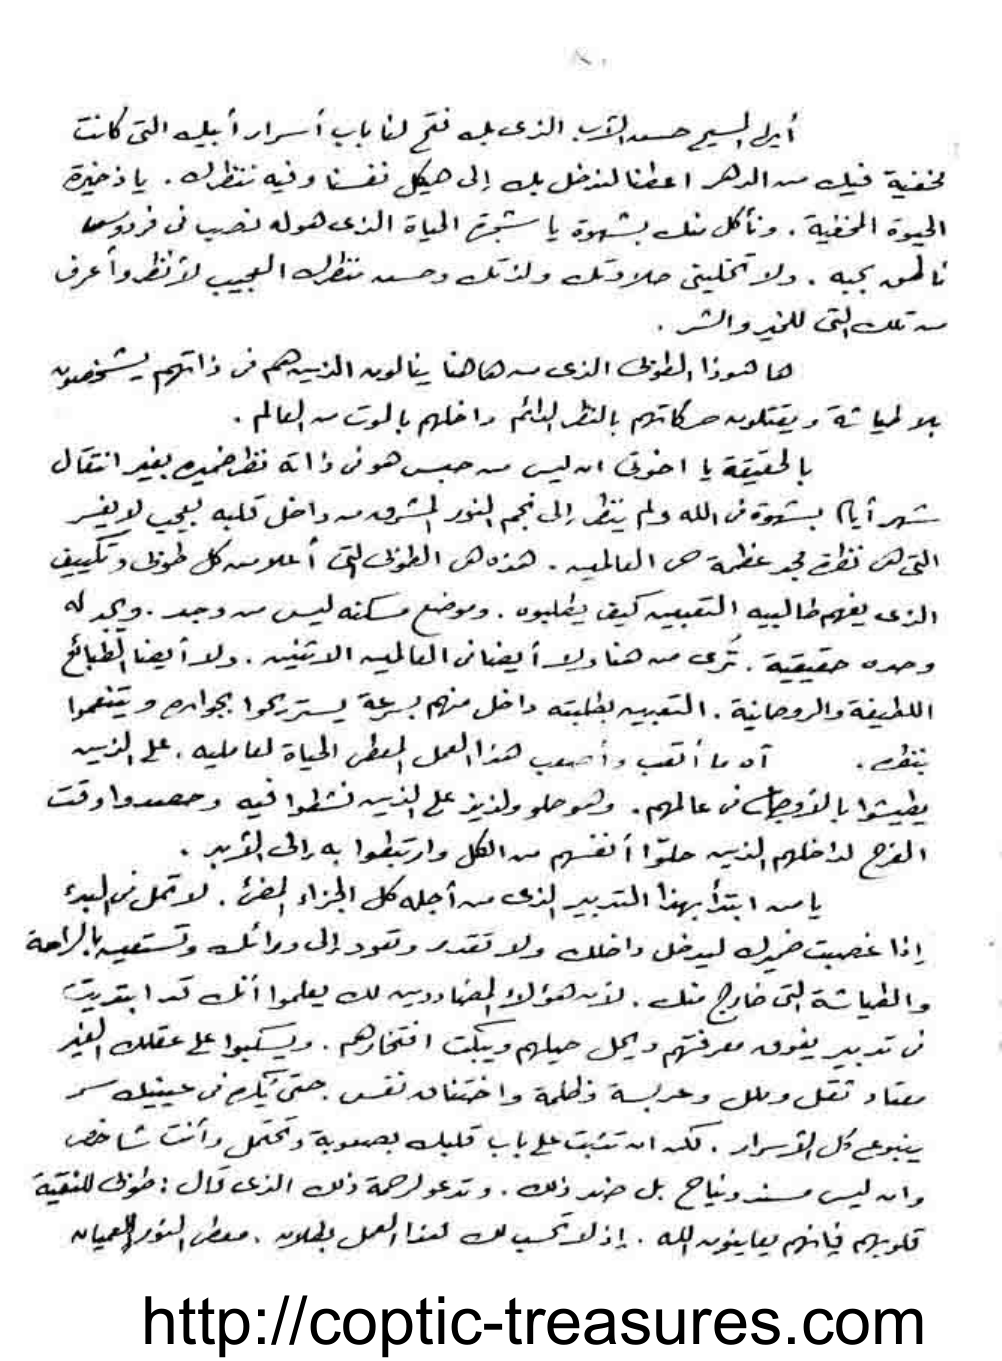 ٨٠
أيها المسيح حسن الآب الذي بك فتح لنا باب أسرار أبيك التي كانت
مخفية فيك من الدهر اعطنا لندخل بك إلى هيكل نفسنا وفيه ننظرك . يا ذخيرة
الحيوة المخفية . ونأكل منك بشهوة يا شجرة الحياة الذي هوله نصب في فردوسها
ناطق بحبه . ولا تخليني حلاوتك ولذتك وحسن منظرك العجيب لأنظر وأعرف
من تلك التي للخير والشر .
ها هوذا الطوبى الذي من هاهنا ينالون الذين هم في ذاتهم يشخصون
بلا طياشة ويقتلون حركاتهم بالنظر الدائم داخلهم بالموت من العالم .
بالحقيقة يا اخوتي ان ليس من حبس هو في ذاته نظر ضميره بغير انتقال
شهر أيام بشهوة في الله ولم ينظر إلى نجم النور المشرق من داخل قلبه بعجب لا يفسر
التي هي نظرة مجد عظمة حي العالمين . هذه هي الطوبى التي أعلا من كل طوبى وتكييف
الذي يفهم طالبيه المتعبين كيف يطلبوه . وموضع مسكنه ليس من وجد . ويجد له
وحده حقيقية . تُرى من هنا ولا أيضا في العالمين الاثنين . ولا أيضا الطبائع
اللطيفة والروحانية . المتعبين بطلبته داخل منهم بسرعة يستريحوا بجواره ويتنعموا
بنظره . آه ما أتعب وأصعب هذا العمل المعطي الحياة لعامليه . على الذين
يطيشوا بالأوجاع في عالمهم . وهو حلو ولذيذ على الذين نشطوا فيه وحصدوا وقت
الفرح لداخلهم الذين حلّوا أنفسهم من الكل وارتبطوا به إلى الأبد .
يا من ابتدأ بهذا التدبير الذي من أجله كل الجزاء المضئ . لا تمل في البدء
إذا غصبت ضميرك ليدخل داخلك ولا تقدر وتعود إلى ورائك وتستعين بالراحة
والطياشة التي خارج منك . لأن هؤلاء المضاددين لك يعلموا أنك قد ابتديت
في تدبير يفوق معرفتهم ويحل حيلهم ويبكت افتخارهم . ويسكبوا على عقلك الغير
معتاد ثقل وملل وعربسة وظلمة واختناق نفس . حتى يُكره في عينيك سر
ينبوع كل الأسرار . لكن ان تثبت على باب قلبك بصعوبة وتحتمل وأنت شاخص
وان ليس مسند ونياح بل ضد ذلك . وتدعو لرحمة ذلك الذي قال : طوبى للنقية
قلوبهم فإنهم يعاينون الله . إذ لا تحسب لك لهذا العمل بطلان . معطي النور للعميان
http://coptic-treasures.com